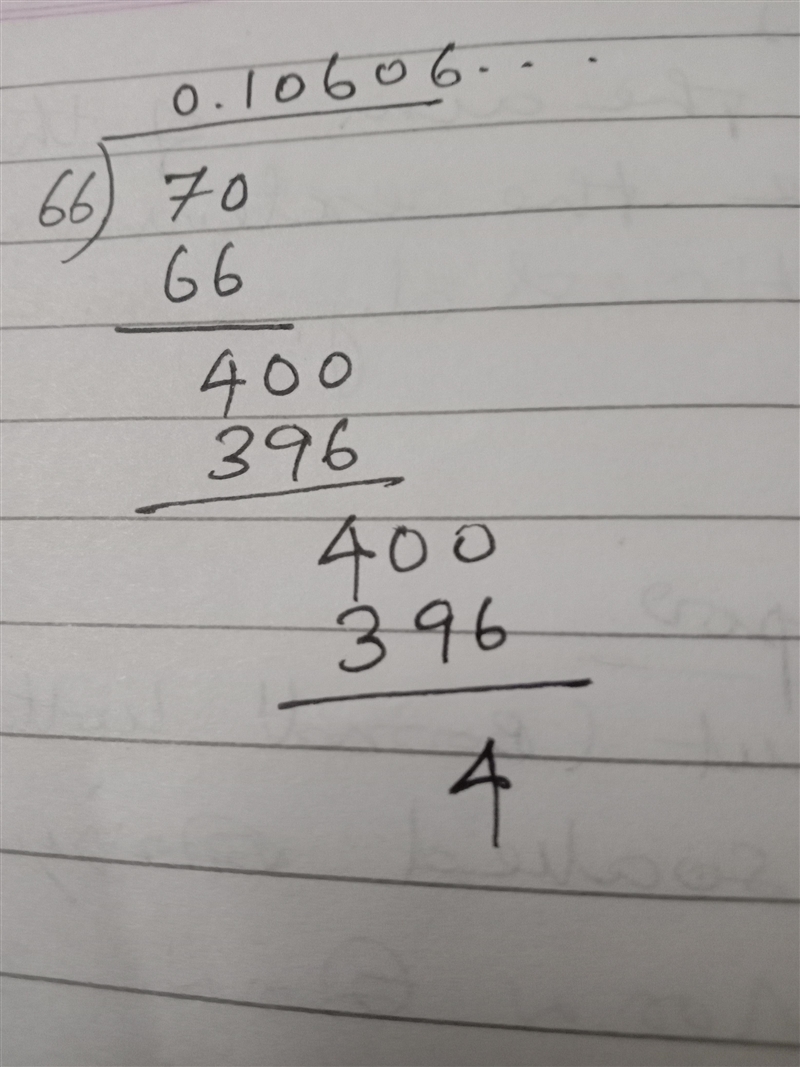 0.10606...
66)70
66
400
396
400
396
4